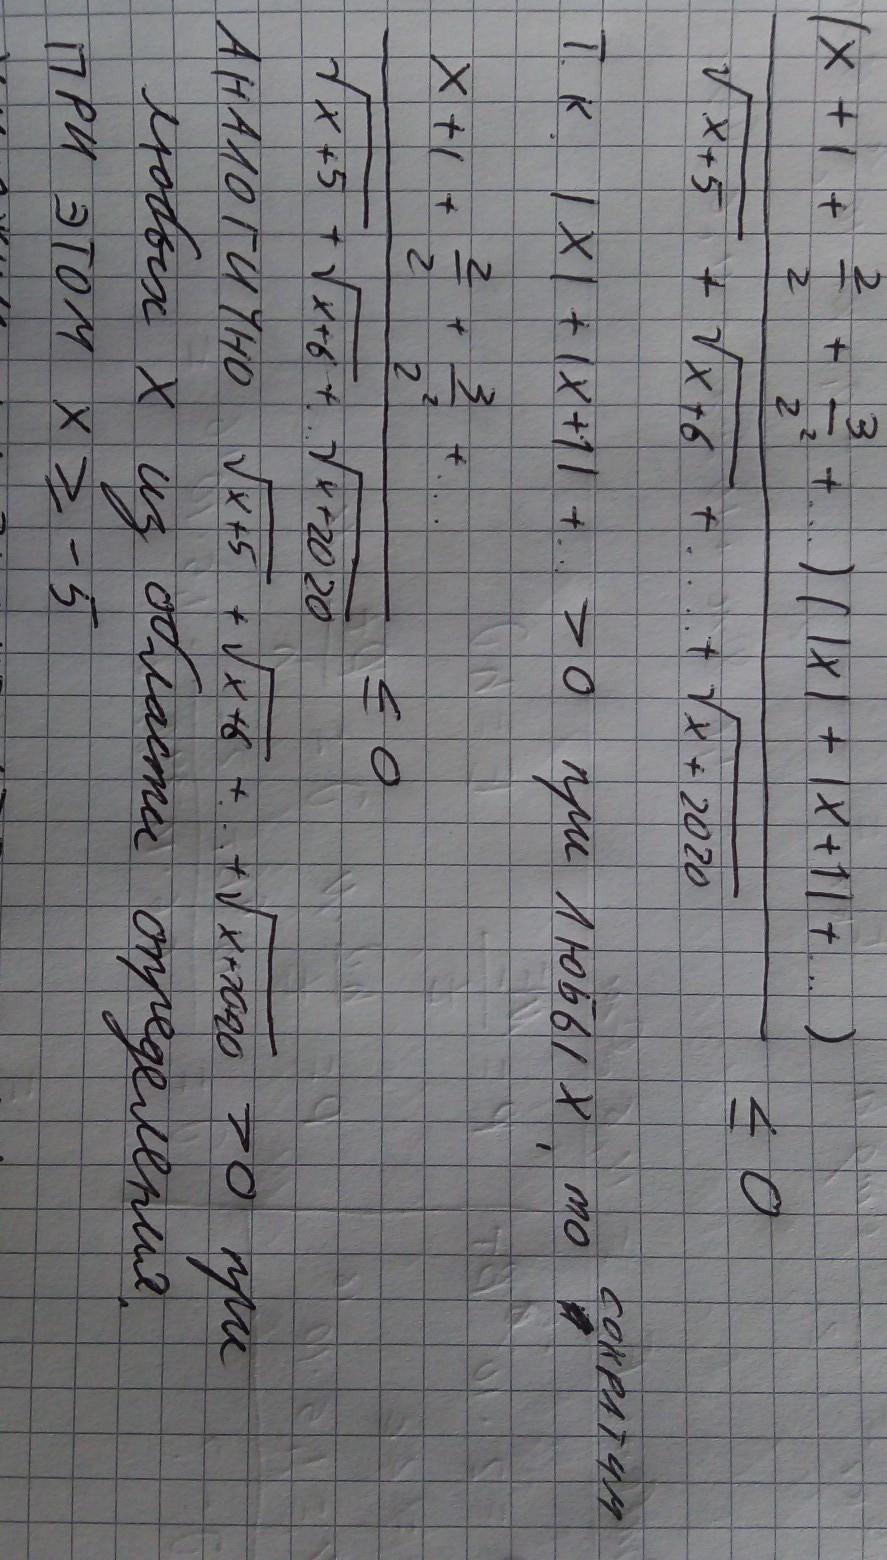 (x + 1 + 2/2 + 3/2² + ...)(|x| + |x+1| + ...)
√x+5 + √x+6 + .... + √x+2020
≤ 0
Т.к. |x| + |x+1| + ... > 0 при любых x, то сократим
x + 1 + 2/2 + 3/2² + ...
√x+5 + √x+6 + ... √x+2020
≤ 0
Аналогично √x+5 + √x+6 + ... + √x+2020 > 0 при
любых x из области определения.
При этом x ≥ -5